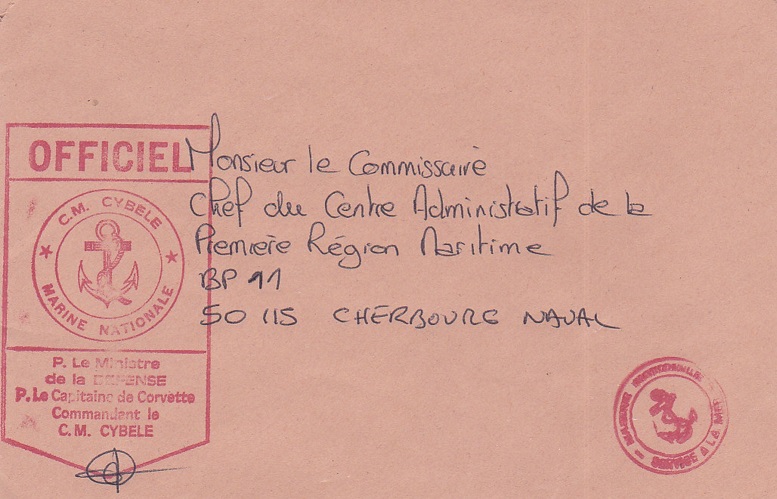 OFFICIEL
C.M. CYBELE
MARINE NATIONALE
P. Le Ministre
de la DEFENSE
P. Le Capitaine de Corvette
Commandant le
C.M. CYBELE
Monsieur le Commissaire
Chef du Centre Administratif de la
Première Région Maritime
BP 11
50 115 CHERBOURG NAVAL
SERVICE A LA MER